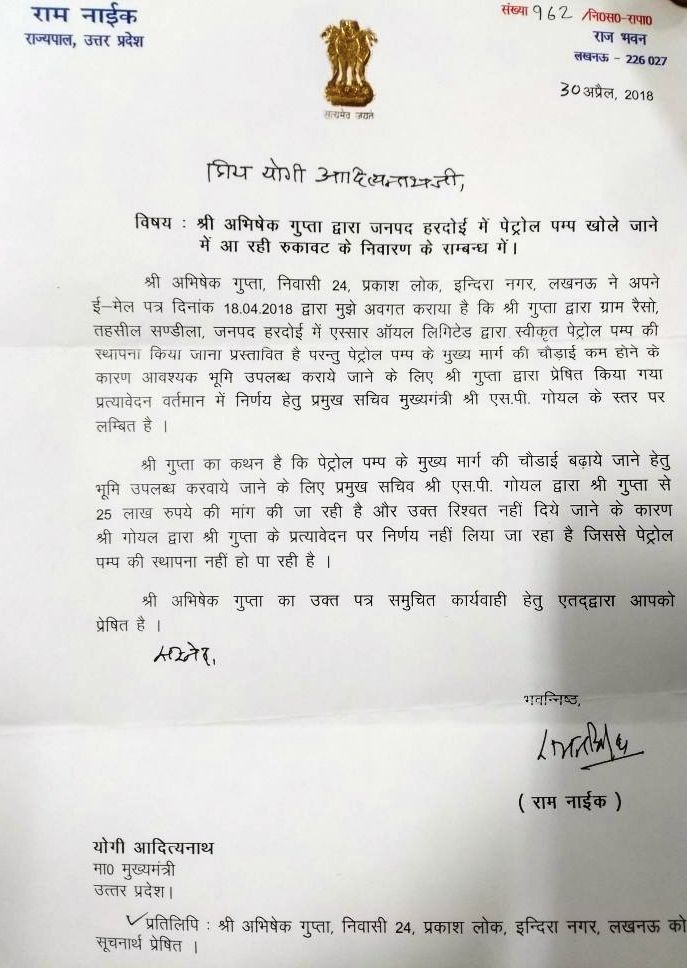 राम नाईक
राज्यपाल, उत्तर प्रदेश
संख्या 962 /नि0स0-रापा0
राज भवन
लखनऊ - 226 027
30 अप्रैल, 2018
सत्यमेव जयते
प्रिय योगी आदित्यनाथजी,
विषय : श्री अभिषेक गुप्ता द्वारा जनपद हरदोई में पेट्रोल पम्प खोले जाने
में आ रही रुकावट के निवारण के सम्बन्ध में।
श्री अभिषेक गुप्ता, निवासी 24, प्रकाश लोक, इन्दिरा नगर, लखनऊ ने अपने
ई-मेल पत्र दिनांक 18.04.2018 द्वारा मुझे अवगत कराया है कि श्री गुप्ता द्वारा ग्राम रैसो,
तहसील सण्डीला, जनपद हरदोई में एस्सार ऑयल लिमिटेड द्वारा स्वीकृत पेट्रोल पम्प की
स्थापना किया जाना प्रस्तावित है परन्तु पेट्रोल पम्प के मुख्य मार्ग की चौड़ाई कम होने के
कारण आवश्यक भूमि उपलब्ध कराये जाने के लिए श्री गुप्ता द्वारा प्रेषित किया गया
प्रत्यावेदन वर्तमान में निर्णय हेतु प्रमुख सचिव मुख्यमंत्री श्री एस.पी. गोयल के स्तर पर
लम्बित है ।
श्री गुप्ता का कथन है कि पेट्रोल पम्प के मुख्य मार्ग की चौडाई बढ़ाये जाने हेतु
भूमि उपलब्ध करवाये जाने के लिए प्रमुख सचिव श्री एस.पी. गोयल द्वारा श्री गुप्ता से
25 लाख रुपये की मांग की जा रही है और उक्त रिश्वत नहीं दिये जाने के कारण
श्री गोयल द्वारा श्री गुप्ता के प्रत्यावेदन पर निर्णय नहीं लिया जा रहा है जिससे पेट्रोल
पम्प की स्थापना नहीं हो पा रही है ।
श्री अभिषेक गुप्ता का उक्त पत्र समुचित कार्यवाही हेतु एतद्द्वारा आपको
प्रेषित है ।
सस्नेह,
भवन्निष्ठ,
( राम नाईक )
योगी आदित्यनाथ
मा0 मुख्यमंत्री
उत्तर प्रदेश।
प्रतिलिपि : श्री अभिषेक गुप्ता, निवासी 24, प्रकाश लोक, इन्दिरा नगर, लखनऊ को
सूचनार्थ प्रेषित ।